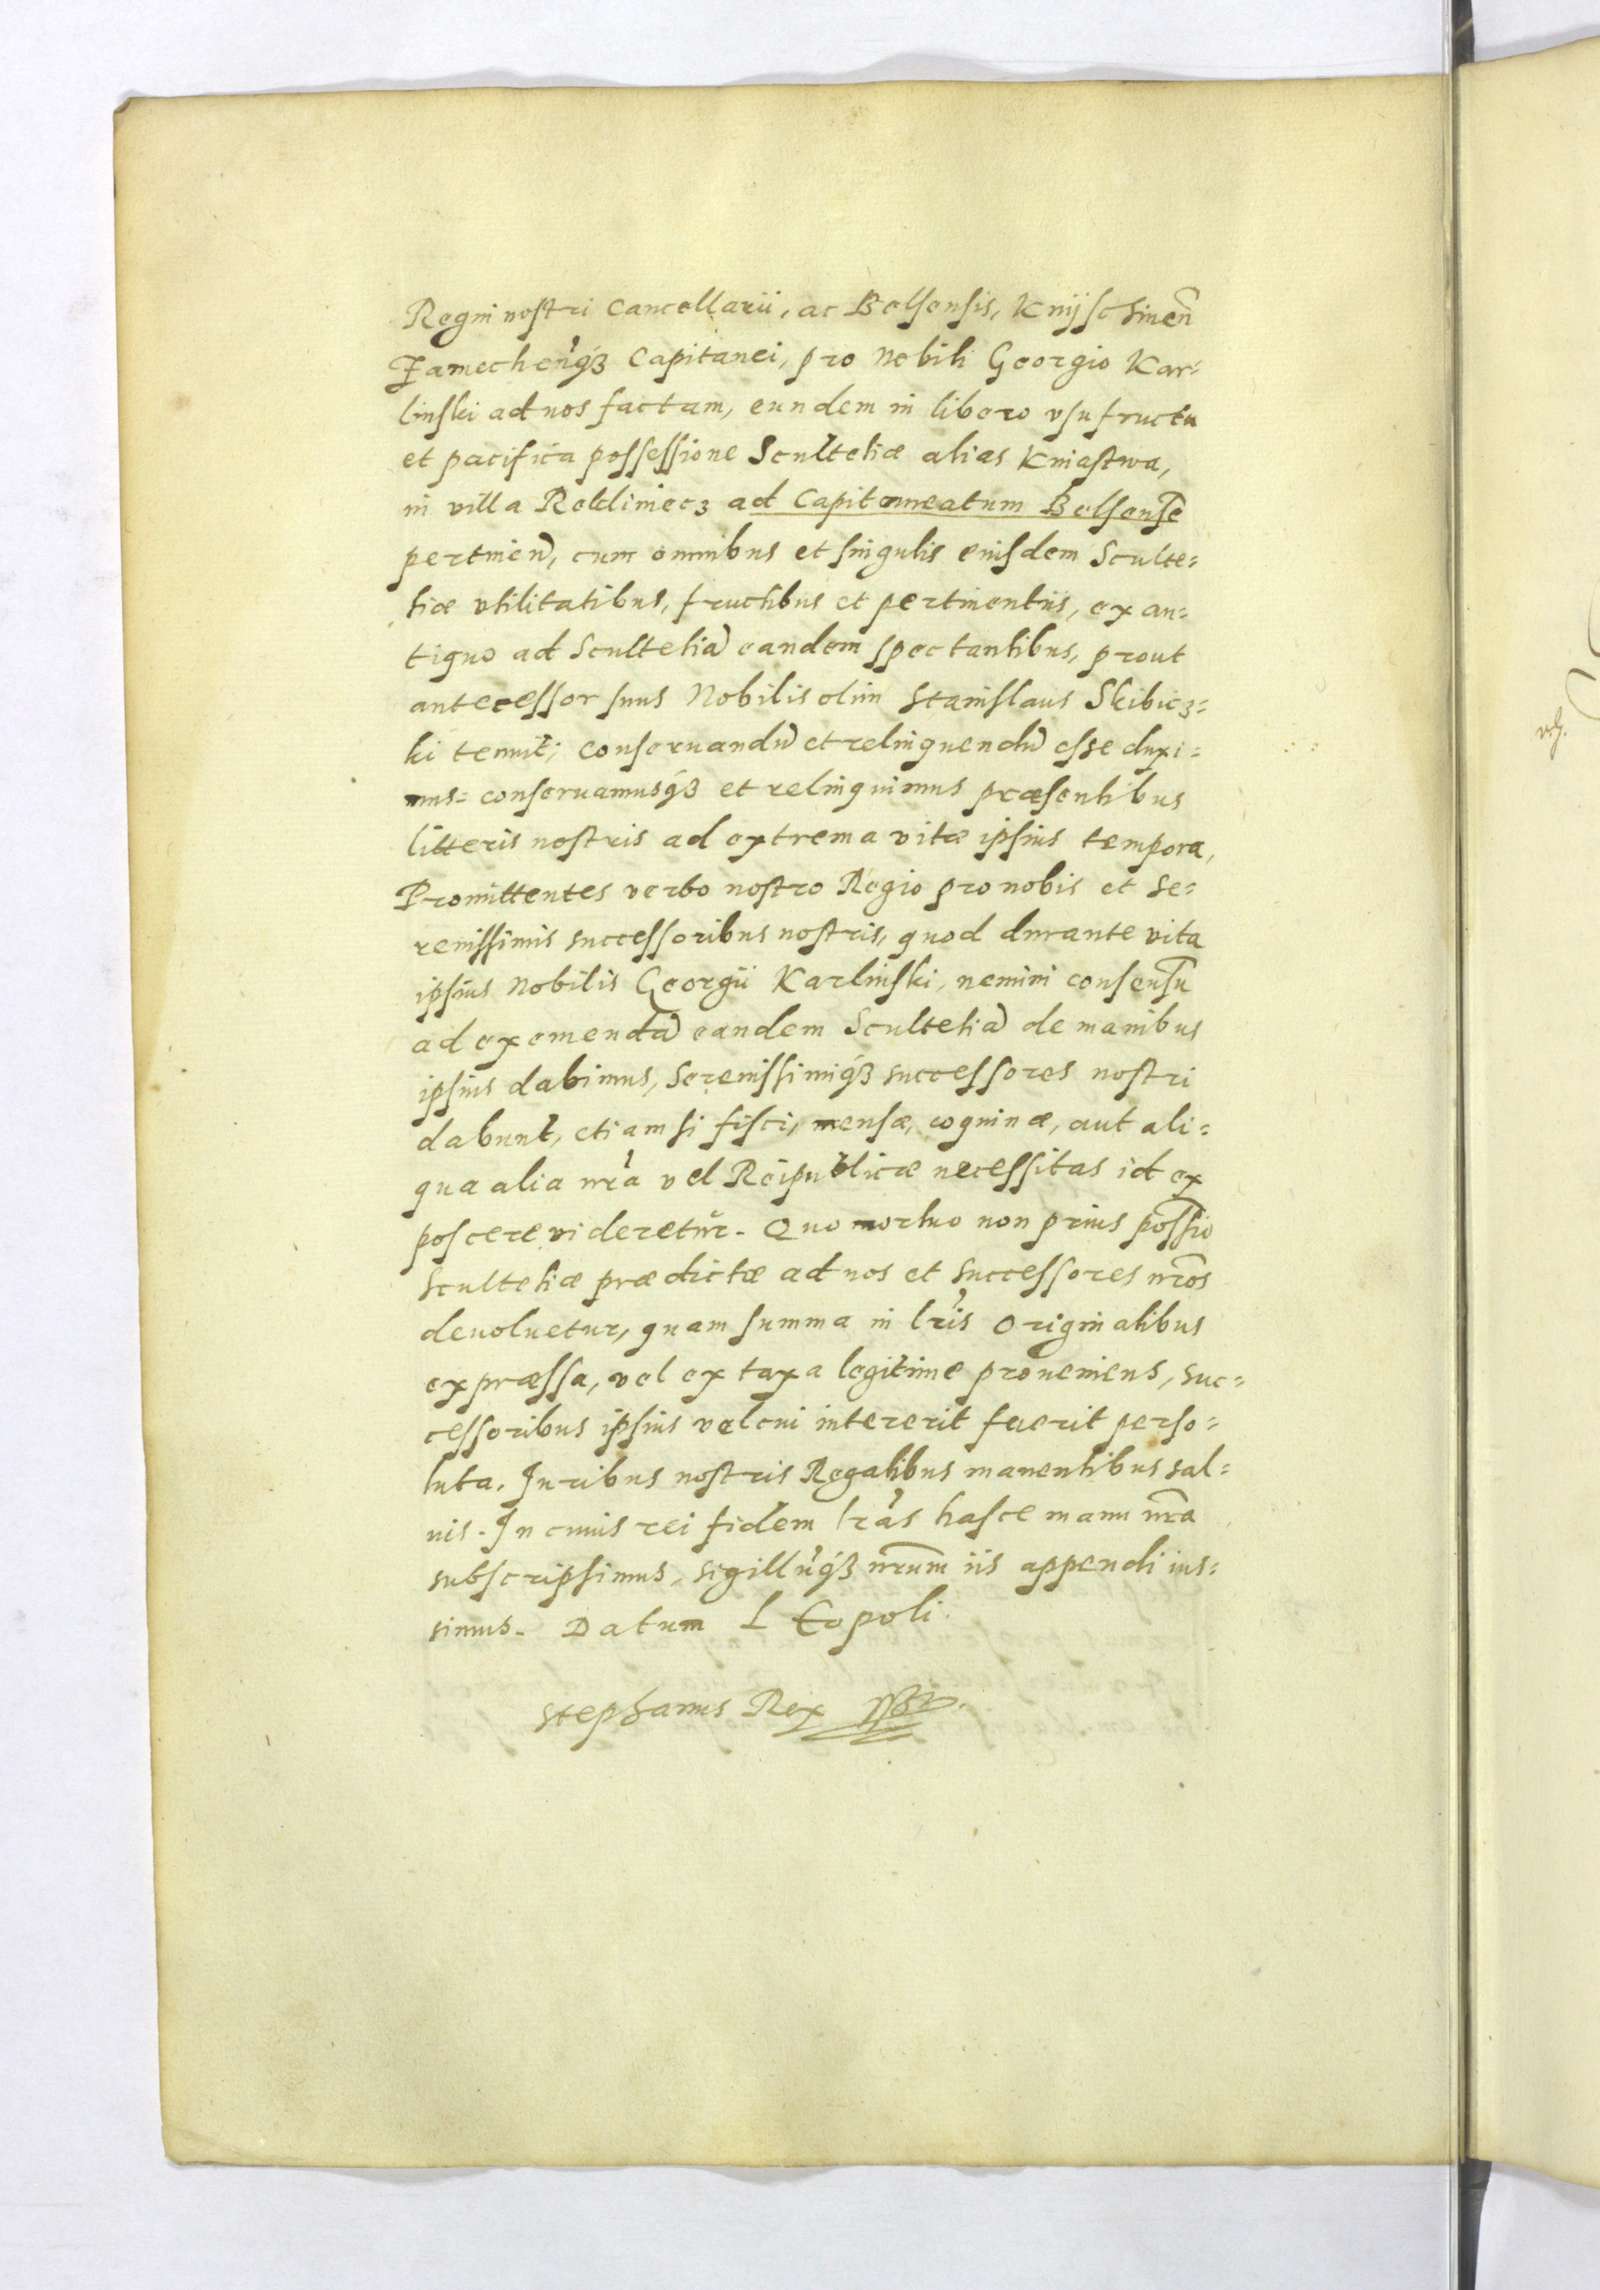 Regni nostri Cancellarii, ac Belsensis, Knijschinen̄
Zamechen̄q́ʒ Capitanei, pro Nobili Georgio Kar-
linski ad nos factam, eundem in libero vsufructu
et pacifica possessione Scultetiæ alias Kniastwa,
in villa Rokliniecz ad Capitaneatum Belsense
pertinen̄, cum omnibus et singulis eiusdem Sculte-
tiæ vtilitatibus, fructibus et pertinentiis, ex an-
tiquo ad Scultetiā eandem spectantibus, prout
antecessor suus Nobilis olim Stanislaus Skibicz-
ki tenuit; conseruandū et relinquendū esse duxi-
mus- conseruamusq́ʒ et relinquimus præsentibus
litteris nostris ad extrema vitæ ipsius tempora,
Promittentes verbo nostro Regio pro nobis et Se-
renissimis successoribus nostris, quod durante vita
ipsius Nobilis Georgii Karlinski, nemini consensū
ad exemendā eandem Scultetiā de manibus
ipsius dabimus, Serenissimiq́ʒ successores nostri
dabunt, etiam si fisci, mensæ, coquinæ, aut ali-
qua alia nr̄a vel Reipublicæ necessitas id ex
poscere videretur. Quo mortuo non prius poss̄io
Scultetiæ prædictæ ad nos et Successores nr̄os
deuoluetur, quam summa in lr̄is Originalibus
expræssa, vel ex taxa legitime proueniens, suc-
cessoribus ipsius vel cui intererit fuerit perso-
luta. Juribus nostris Regalibus manentibus sal-
uis. In cuius rei fidem lr̄as hasce manu nr̄a
subscripsimus, sigillūq́ʒ nr̄um iis appendi ius-
simus. Datum LEopoli.
Stephanus Rex